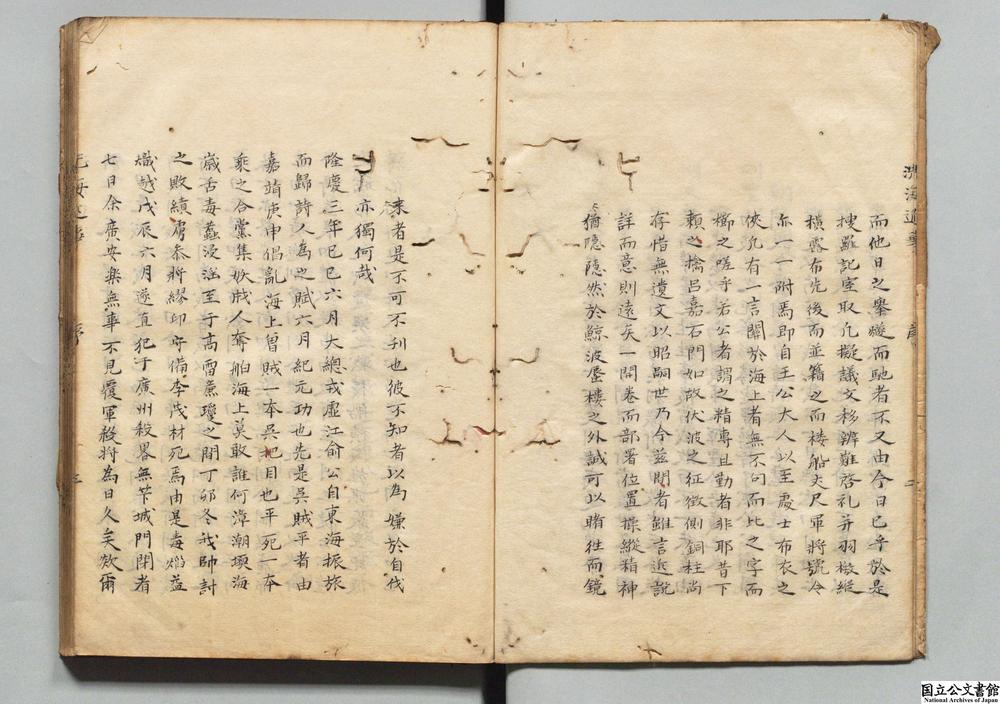 洗海近事
序
二
而他日之舉燧而馳者不又由今日已乎於是
搜羅記室取凡擬議文移辨難啓札并羽檄縱
橫露布先後而並籍之而樓船大尺軍將號令
亦一一附焉即自王公大人以至處士布衣之
俠凡有一言關於海上者無不句而比之字而
櫛之嗟乎若公者謂之精專且勤者非耶昔下
瀨之擒呂嘉石門如故伏波之征徵側銅柱尚
存惜無遺文以昭嗣世乃今茲閱者雖言近說
詳而意則遠矣一開卷而部署位置操縱精神
猶隱隱然於鯨波蜃樓之外誠可以睹往而鏡
來者是不可不刊也彼不知者以為嫌於自伐
亦獨何哉
隆慶三年己巳六月大總戎虛江俞公自東海振旅
而歸詩人為之賦六月紀元功也先是吳賊平者由
嘉靖庚申倡亂海上曾賊一本吳把目也平死一本
乘之合黨集娭戕人奪舶海上莫敢誰何漳潮瀕海
歲舌毒蠚浸淫至于高雷廉瓊之間丁卯冬我帥討
之敗績虜參將繆印守備李茂材死焉由是毒焰益
熾越戊辰六月遂直犯于廣州殺畧無筭城門閉者
七日余廣安樂無事不見覆軍殺將為日久矣欻爾
洗海近事
序
三
国立公文書館
National Archives of Japan